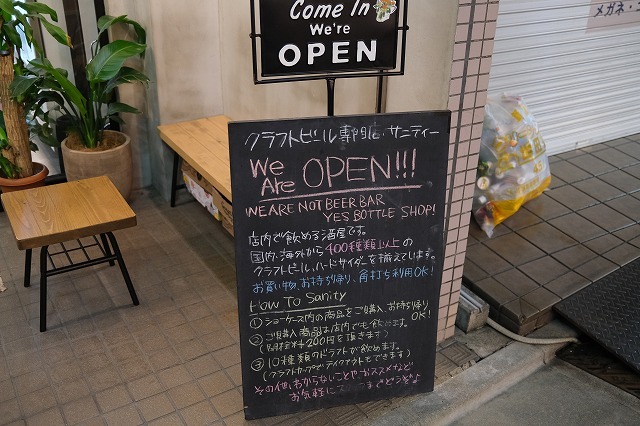 Come In
We're
OPEN
メガネ・
クラフトビール専門店・サニティー
We
Are OPEN!!!
WE ARE NOT BEER BAR
YES BOTTLE SHOP!
店内で飲める酒屋です。
国内、海外から400種類以上の
クラフトビール、ハードサイダーを揃えています。
お買い物、お持ち帰り、角打ち利用OK!
How To Sanity
① ショーケース内の商品をご購入、お持ち帰りOK!
② ご購入商品は店内でも飲めます。
(別料金+200円を頂きます)
③ 10種類のドラフトが飲めます。
(クラフトカップでテイクアウトもできます)
その他、わからないことやおススメなど
お気軽に までどうぞ